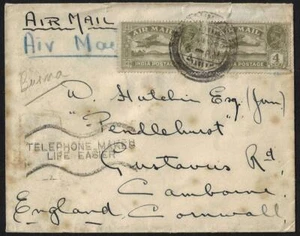 AIR MAIL
Air Mai
AIR MAIL AIR MAIL
4
INDIA POSTAGE INDIA POSTAGE
Burma
W. Hutchin Esq (Junr)
"Pendlehurst"
TELEPHONE MAKES
LIFE EASIER
Gustavus Rd,
Camborne,
England, Cornwall.